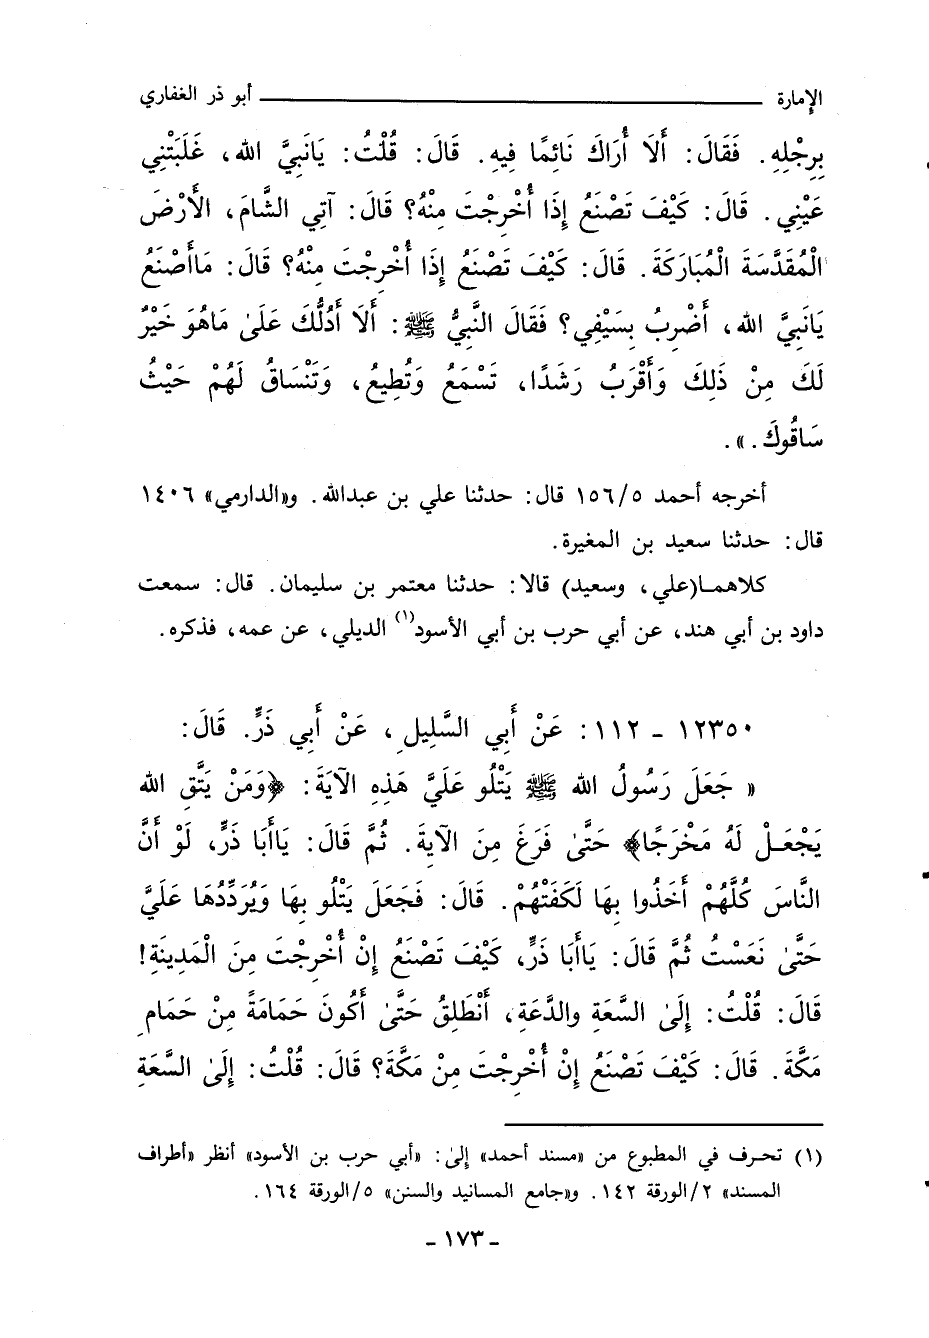 الإمارة ــــــــــــــــــــــــــــــــــــــــ أبو ذر الغفاري
بِرِجْلِهِ. فَقَالَ: أَلَا أُرَاكَ نَائِمًا فِيهِ. قَالَ: قُلْتُ: يَانَبِيَّ الله، غَلَبَتْنِي
عَيْنِي. قَالَ: كَيْفَ تَصْنَعُ إِذَا أُخْرِجْتَ مِنْهُ؟ قَالَ: آتِي الشَّامَ، الأَرْضَ
الْمُقَدَّسَةَ الْمُبَارَكَةَ. قَالَ: كَيْفَ تَصْنَعُ إِذَا أُخْرِجْتَ مِنْهُ؟ قَالَ: مَاأَصْنَعُ
يَانَبِيَّ الله، أَضْرِبُ بِسَيْفِي؟ فَقَالَ النَّبِيُّ ﷺ: أَلَا أَدُلُّكَ عَلَىٰ مَاهُوَ خَيْرٌ
لَكَ مِنْ ذَلِكَ وَأَقْرَبُ رَشَدًا، تَسْمَعُ وَتُطِيعُ، وَتَنْسَاقُ لَهُمْ حَيْثُ
سَاقُوكَ.».
أخرجه أحمد ١٥٦/٥ قال: حدثنا علي بن عبدالله. و«الدارمي» ١٤٠٦
قال: حدثنا سعيد بن المغيرة.
كلاهما(علي، وسعيد) قالا: حدثنا معتمر بن سليمان. قال: سمعت
داود بن أبي هند، عن أبي حرب بن أبي الأسود(١) الديلي، عن عمه، فذكره.
١٢٣٥٠ - ١١٢: عَنْ أَبِي السَّلِيلِ، عَنْ أَبِي ذَرٍّ. قَالَ:
« جَعَلَ رَسُولُ الله ﷺ يَتْلُو عَلَيَّ هَذِهِ الآيَةَ: ﴿وَمَنْ يَتَّقِ الله
يَجْعَلْ لَهُ مَخْرَجًا﴾ حَتَّىٰ فَرَغَ مِنَ الآيةَ. ثُمَّ قَالَ: يَاأَبَا ذَرٍّ، لَوْ أَنَّ
النَّاسَ كُلَّهُمْ أَخَذُوا بِهَا لَكَفَتْهُمْ. قَالَ: فَجَعَلَ يَتْلُو بِهَا وَيُرَدِّدُهَا عَلَيَّ
حَتَّىٰ نَعَسْتُ ثُمَّ قَالَ: يَاأَبَا ذَرٍّ، كَيْفَ تَصْنَعُ إِنْ أُخْرِجْتَ مِنَ الْمَدِينَةِ!
قَالَ: قُلْتُ: إِلَىٰ السَّعَةِ والدَّعَةِ، أَنْطَلِقُ حَتَّىٰ أَكُونَ حَمَامَةً مِنْ حَمَامِ
مَكَّةَ. قَالَ: كَيْفَ تَصْنَعُ إِنْ أُخْرِجْتَ مِنْ مَكَّةَ؟ قَالَ: قُلْتُ: إِلَىٰ السَّعَةِ
(١) تحرف في المطبوع من «مسند أحمد» إلىٰ: «أبي حرب بن الأسود» أنظر «أطراف
المسند» ٢/الورقة ١٤٢. و«جامع المسانيد والسنن» ٥/الورقة ١٦٤.
- ١٧٣ -